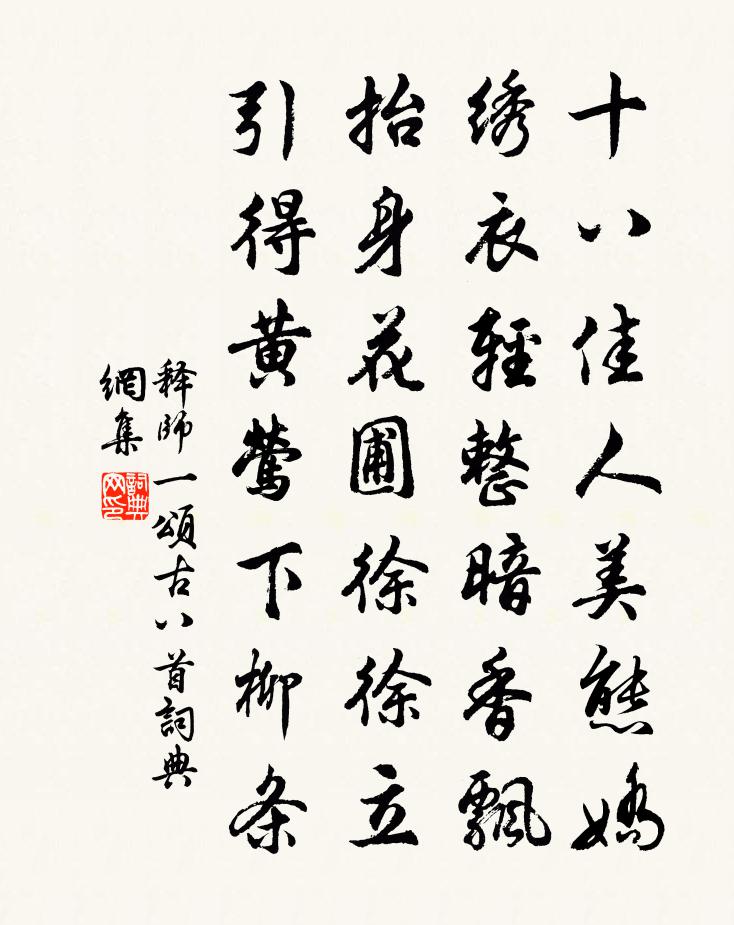 十八佳人美態嬌
绣衣輕整暗香飄
抬身花圃徐徐立
引得黄鶯下柳条
释師一頌古八首詞典
網集
詞典
网印